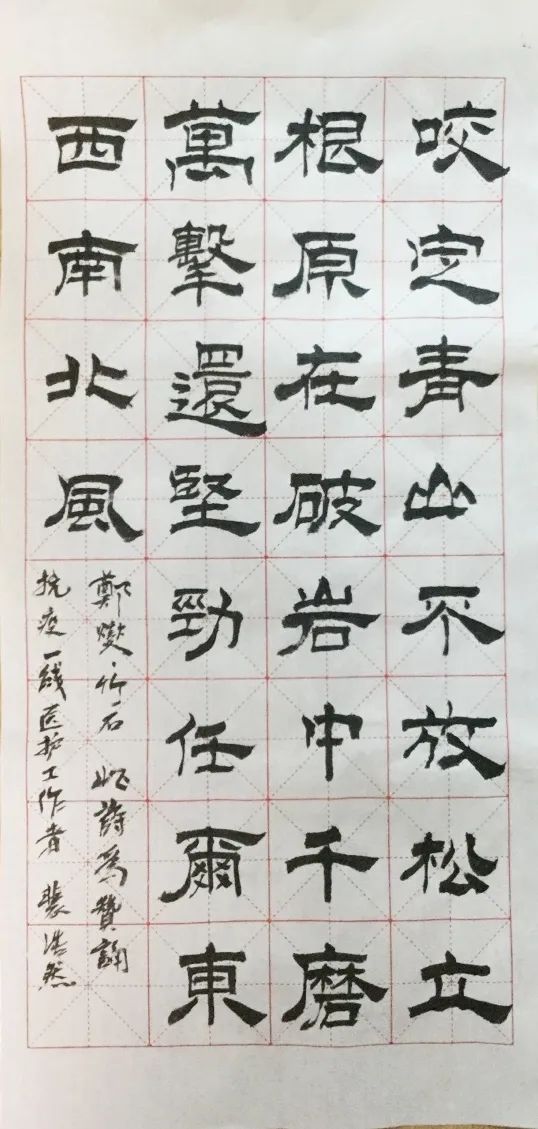 咬定青山不放松立
根原在破岩中千磨
萬擊還堅勁任爾東
西南北風
鄭燮竹石 此詩為贊誦
抗疫一线医护工作者 裴浩然